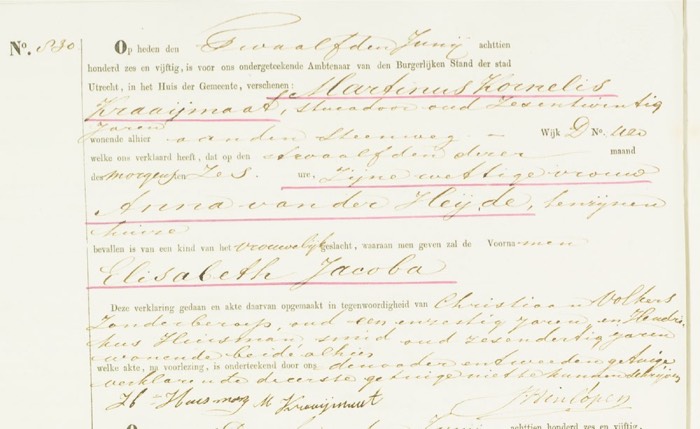 No. 830 Op heden den Twaalfden Junij achttien
honderd zes en vijftig, is voor ons ondergeteekende Ambtenaar van den Burgerlijken Stand der stad
Utrecht, in het Huis der Gemeente, verschenen: Martinus Kornelis
Kraaijmaat, stucadoor oud zesentwintig
Jaren
wonende alhier aan den Steenweg – Wijk D No.
welke ons verklaard heeft, dat op den twaalfden dezer maand
des morgens ten zes ure, zijne wettige vrouw
Anna van der Heijde, tenzijnen
huize
bevallen is van een kind van het vrouwelijk geslacht, waaraan men geven zal de Voornamen
Elisabeth Jacoba
Deze verklaring gedaan en akte daarvan opgemaakt in tegenwoordigheid van Christiaan Volkers
zonder beroep, oud een enzestig jaren en Hendri-
kus Huisman, smid oud zesendertig jaren
wonende beide alhier
welke akte, na voorlezing, is onderteekend door ons den vader en tweeden getuige
verklarende de eerste getuige niet te kunnen schrijven
H Huisman M Kraaijmaat
achttien honderd zes en vijftig,